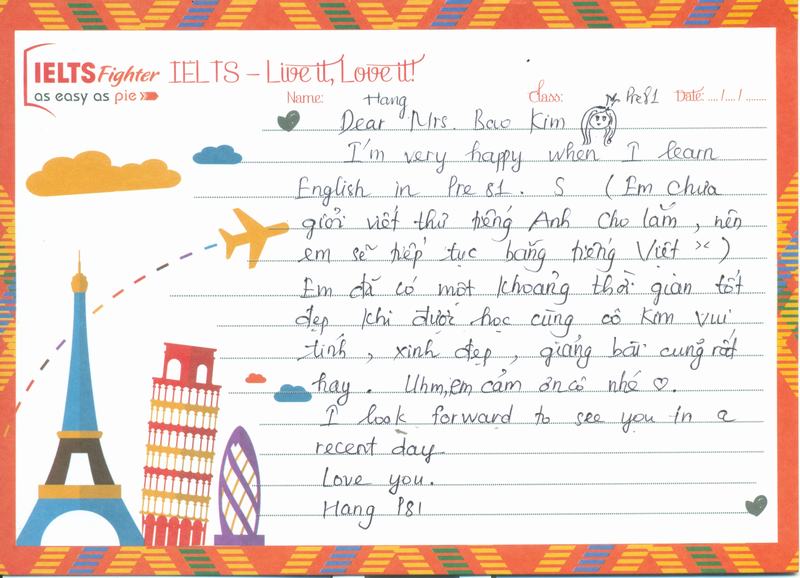 IELTS Fighter IELTS – Live it, Love it!
as easy as pie
Name: Hang Class: Pre 81 Date: ..../..../.......
Dear Mrs. Bao Kim
I'm very happy when I learn
English in Pre 81. S (Em chưa
giỏi viết thư tiếng Anh cho lắm, nên
em sẽ tiếp tục bằng tiếng Việt >< )
Em đã có một khoảng thời gian tốt
đẹp khi được học cùng cô Kim vui
tính, xinh đẹp, giảng bài cũng rất
hay. Uhm, em cảm ơn cô nhé ♡.
I look forward to see you in a
recent day
Love you.
Hang P81